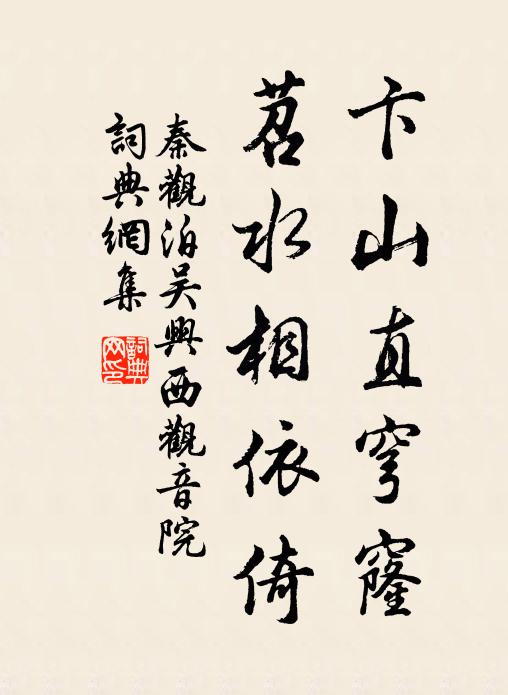 卞山直穹窿
苕水相依倚
秦觀泊吴興西觀音院
詞典網集
詞典網印